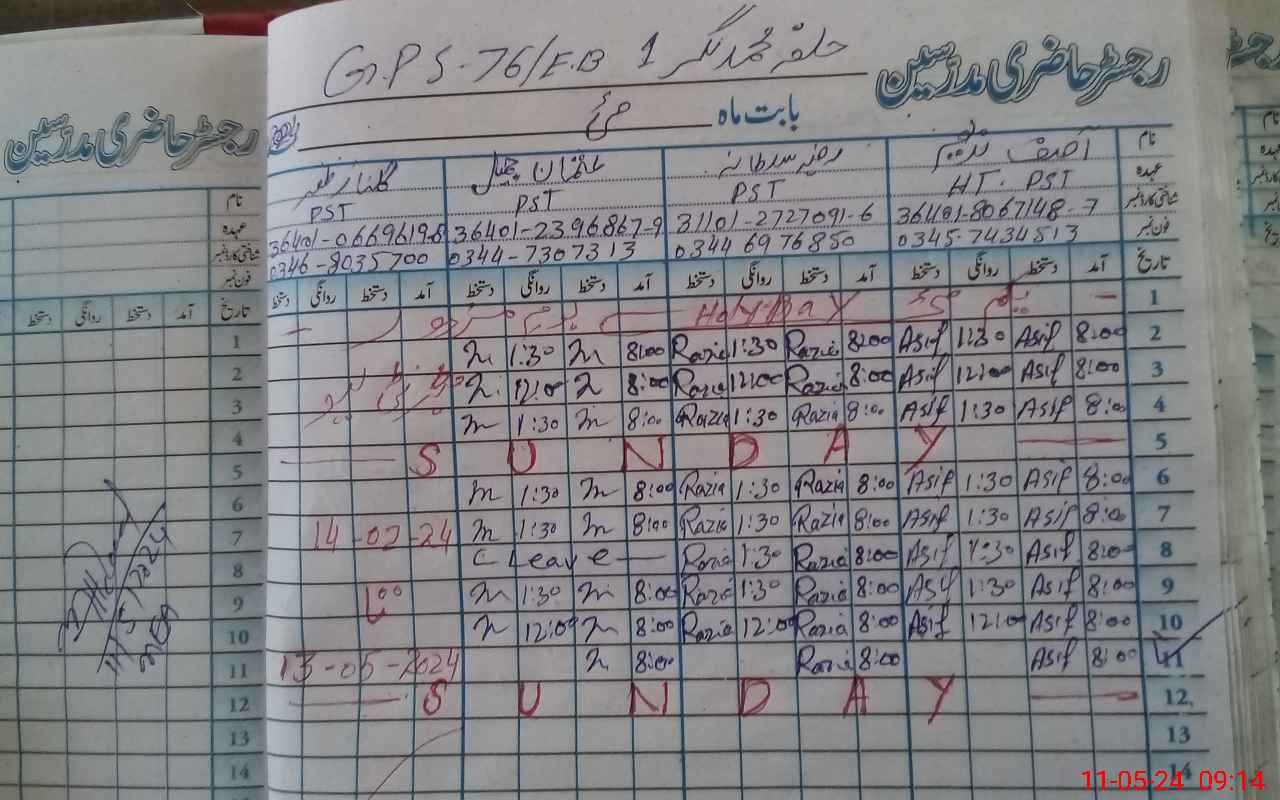 G.P S-76/E.B 1 حلقہ محمد نگر
رجسٹر حاضری مدرسین
بابت ماہ مئی
نام آصف
عہدہ HT. PST PST PST PST
شناختی کارڈ نمبر 36401-8067148-7 31101-2727091-6 36401-2396867-9 36401-0669619-8
فون نمبر 0345-7434513 0344 6976850 0344-7307313 0346-8035700
تاریخ آمد دستخط روانگی دستخط آمد دستخط روانگی دستخط آمد دستخط روانگی دستخط آمد دستخط روانگی دستخط
1 Holy-Day
2 8:00 Asif 1:30 Asif 8:00 Razia 1:30 Razia 8:00 m 1:30 m
3 8:00 Asif 12:00 Asif 8:00 Razia 12:00 Razia 8:00 12:00
4 8:00 Asif 1:30 Asif 8:00 Razia 1:30 Razia 8:00 m 1:30 m
5 S U N D A Y
6 8:00 Asif 1:30 Asif 8:00 Razia 1:30 Razia 8:00 m 1:30 m
7 8:00 Asif 1:30 Asif 8:00 Razia 1:30 Razia 8:00 m 1:30 m 14-02-24
8 8:00 Asif 1:30 Asif 8:00 Razia 1:30 Razia C Leave
9 8:00 Asif 1:30 Asif 8:00 Razia 1:30 Razia 8:00 m 1:30 m تا
10 8:00 Asif 12:00 Asif 8:00 Razia 12:00 Razia 8:00 m 12:00 m
11 8:00 Asif 8:00 Razia 8:00 13-05-2024
12 S U N D A Y
13
14
رجسٹر حاضری مدرسین
نام
عہدہ
شناختی کارڈ نمبر
فون نمبر
تاریخ آمد دستخط روانگی دستخط
1
2
3
4
5
6
7
8
9
10
11
12
13
14
11-05-24 09:14